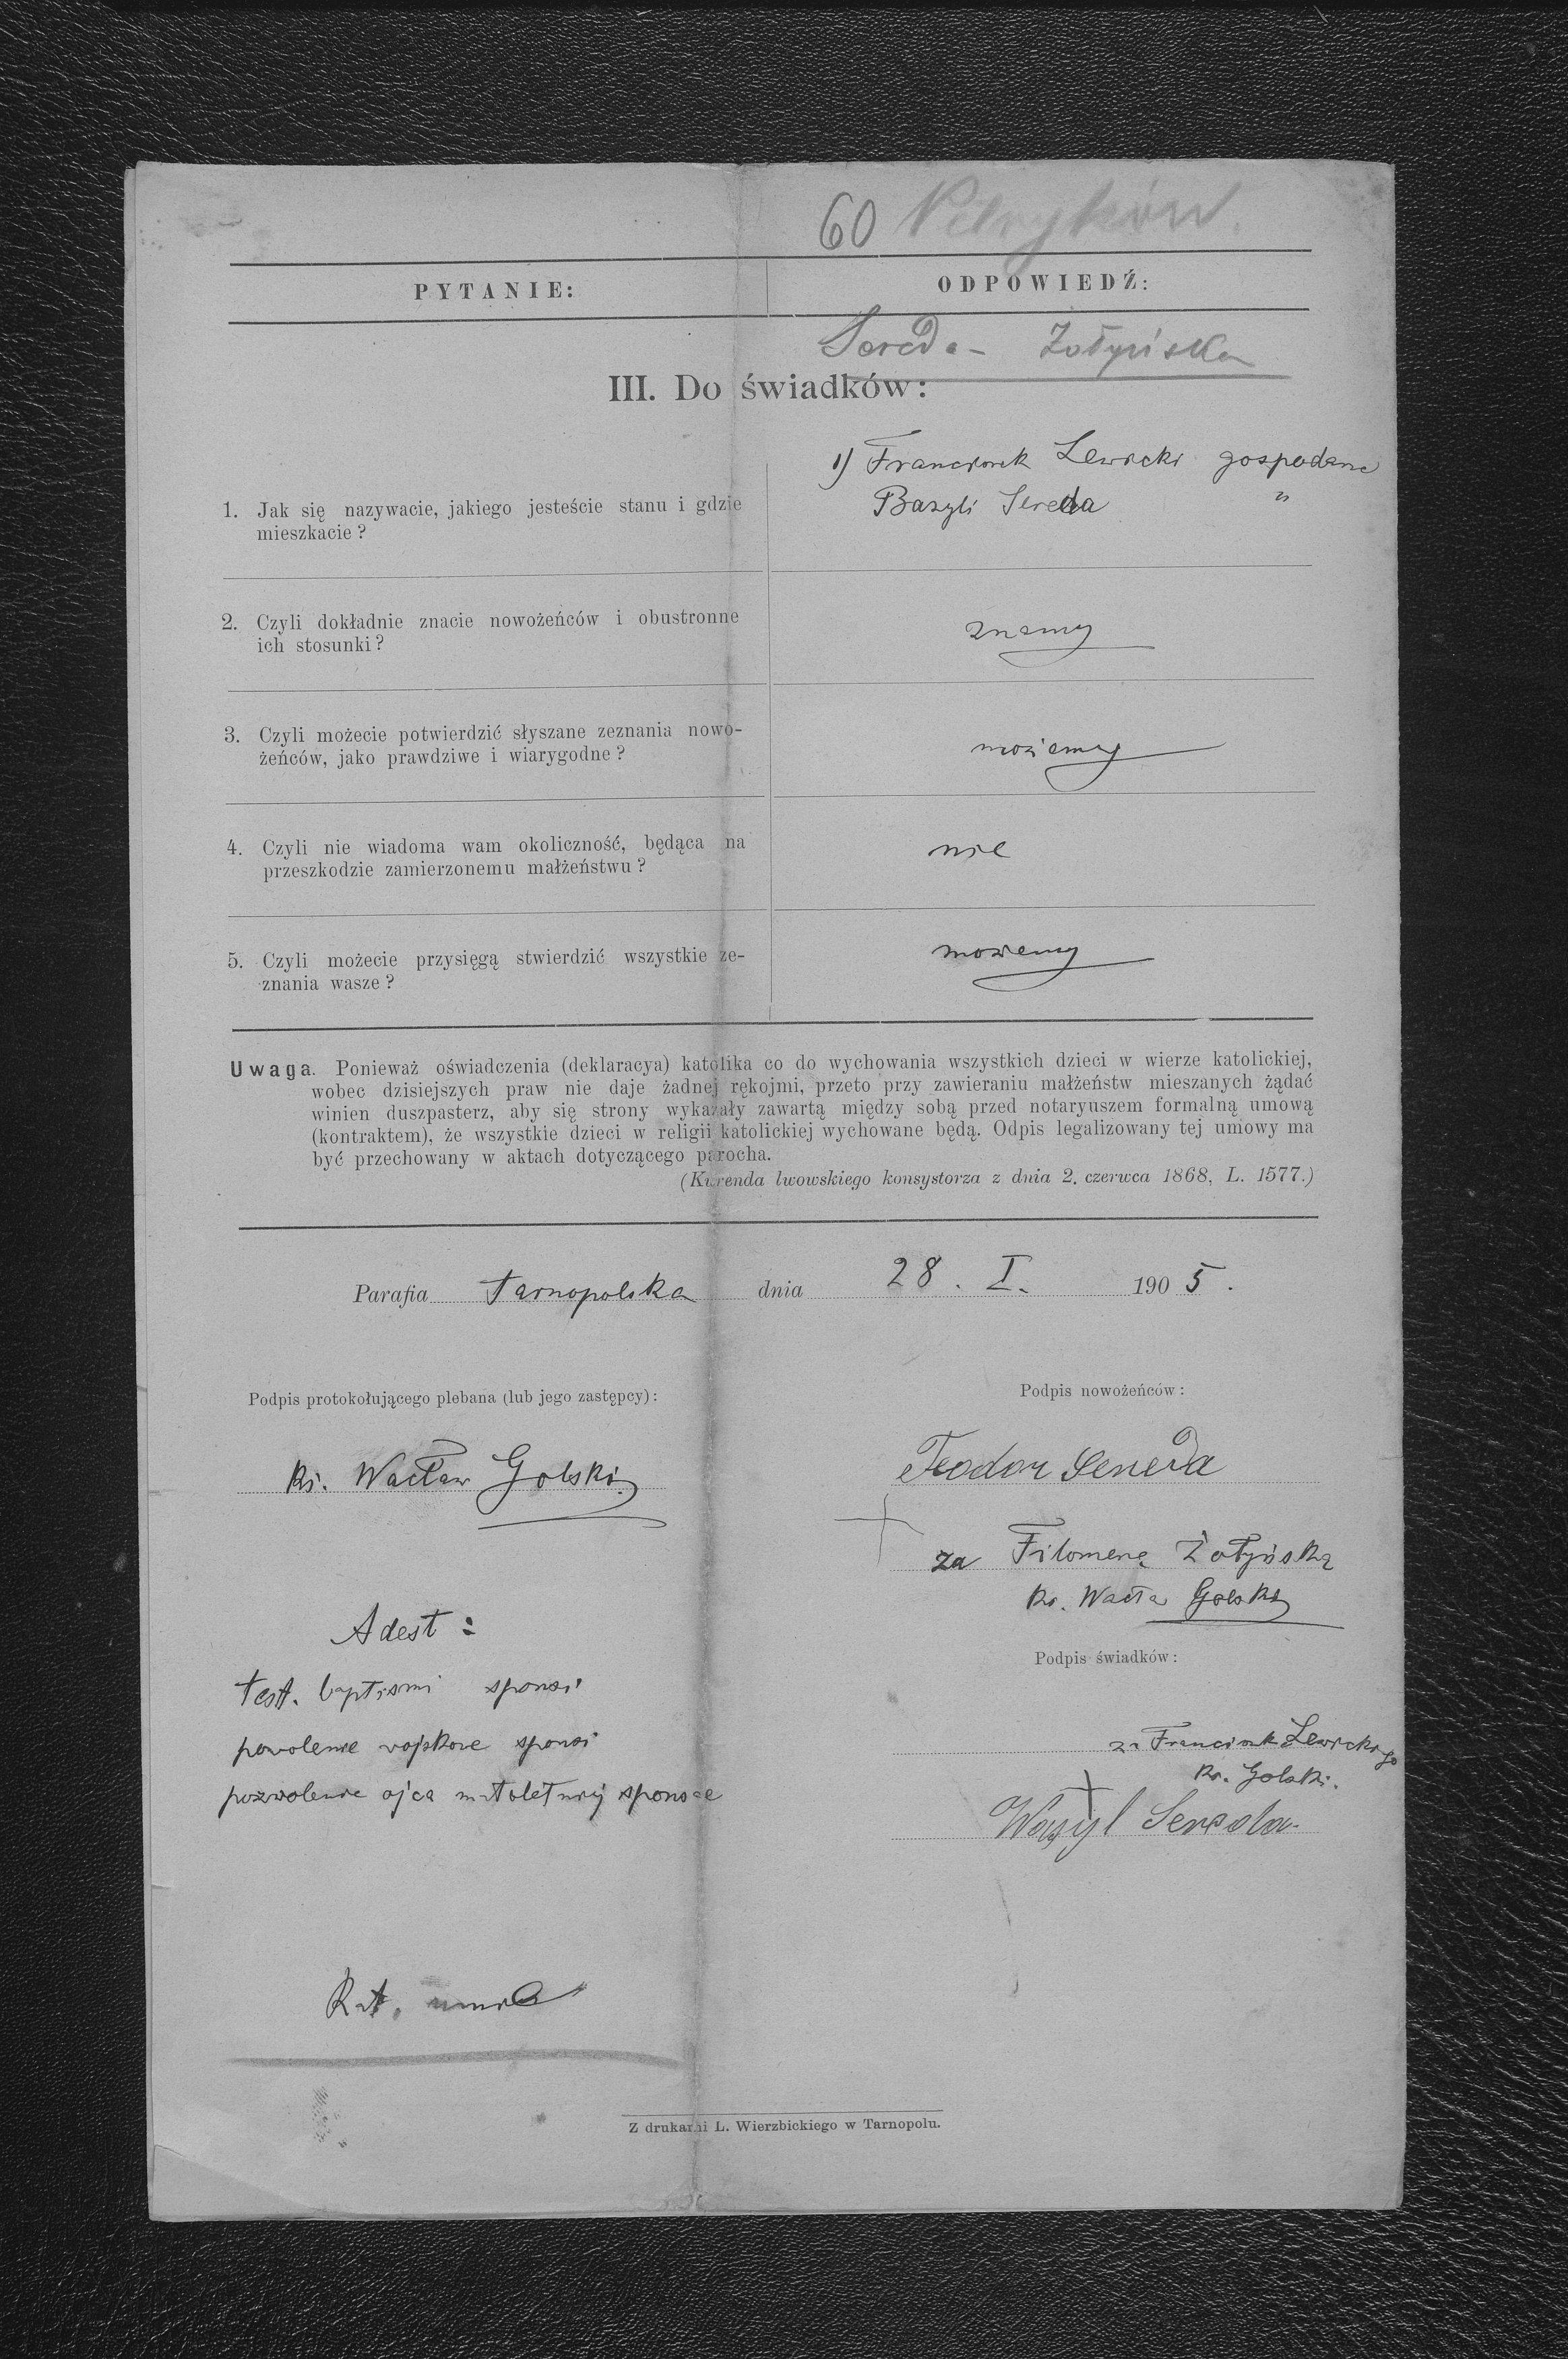 60 Petryków.
PYTANIE:
ODPOWIEDŹ:
Sereda - Żołyńska
III. Do świadków:
1. Jak się nazywacie, jakiego jesteście stanu i gdzie
mieszkacie?
1) Franciszek Lewicki gospodarz
Bazyli Sereda "
2. Czyli dokładnie znacie nowożeńców i obustronne
ich stosunki?
znamy
3. Czyli możecie potwierdzić słyszane zeznania nowo-
żeńców, jako prawdziwe i wiarygodne?
możemy
4. Czyli nie wiadoma wam okoliczność, będąca na
przeszkodzie zamierzonemu małżeństwu?
nie
5. Czyli możecie przysięgą stwierdzić wszystkie ze-
znania wasze?
możemy
Uwaga. Ponieważ oświadczenia (deklaracya) katolika co do wychowania wszystkich dzieci w wierze katolickiej,
wobec dzisiejszych praw nie daje żadnej rękojmi, przeto przy zawieraniu małżeństw mieszanych żądać
winien duszpasterz, aby się strony wykazały zawartą między sobą przed notaryuszem formalną umową
(kontraktem), że wszystkie dzieci w religii katolickiej wychowane będą. Odpis legalizowany tej umowy ma
być przechowany w aktach dotyczącego parocha.
(Kurenda lwowskiego konsystorza z dnia 2. czerwca 1868, L. 1577.)
Parafia Tarnopolska dnia 28. I. 1905.
Podpis protokołującego plebana (lub jego zastępcy):
Ks. Wacław Golski
Podpis nowożeńców:
Teodor Sereda
+
za Filomenę Żołyńską
Ks. Wacław Golski
Adest:
test. baptismi sponsi
pozwolenie wojskowe sponsi
pozwolenie ojca małoletniej sponsae
Podpis świadków:
za Franciszka Lewickiego
Ks. Golski.
+
Wasyl Sereda
Z drukarni L. Wierzbickiego w Tarnopolu.